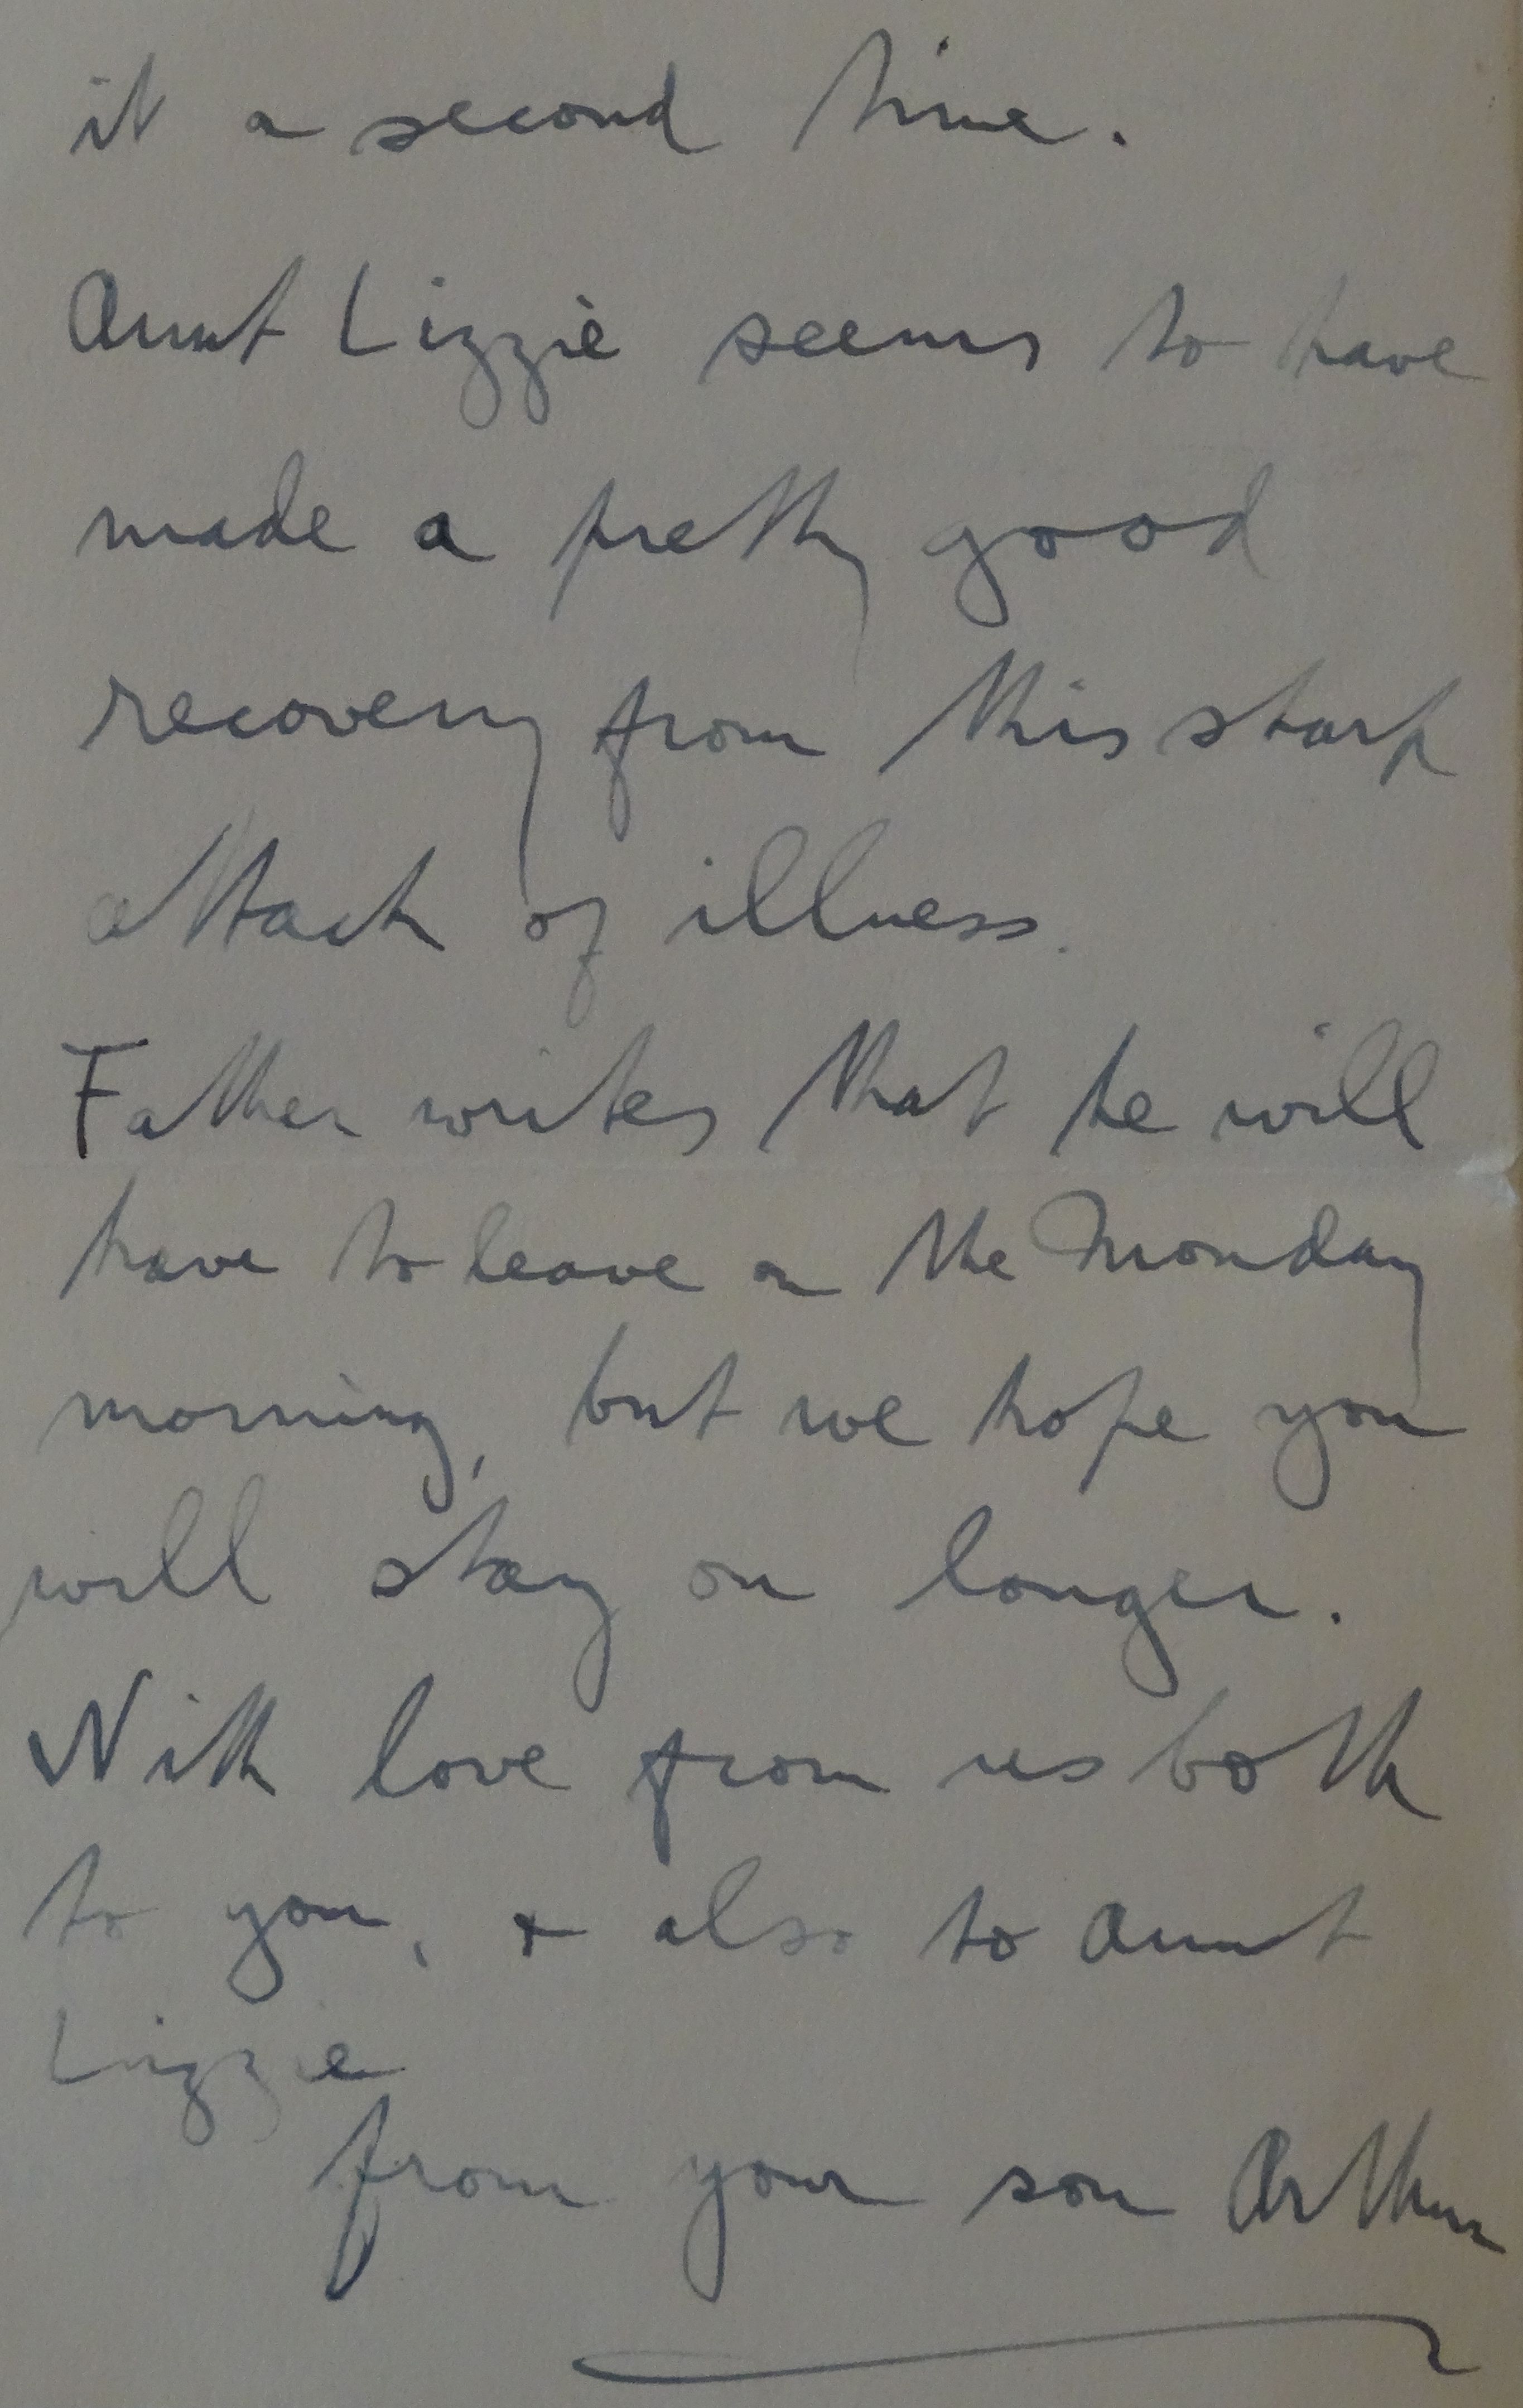 it a second time.
Aunt Lizzie seems to have
made a pretty good
recovery from this sharp
attack of illness.
Father writes that he will
have to leave on the Monday
morning, but we hope you
will stay on longer.
With love from us both
to you, & also to Aunt
Lizzie
from your son Arthur